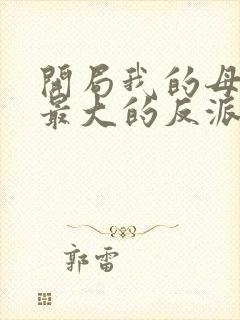 開局我的母
最大的反派
郭雷